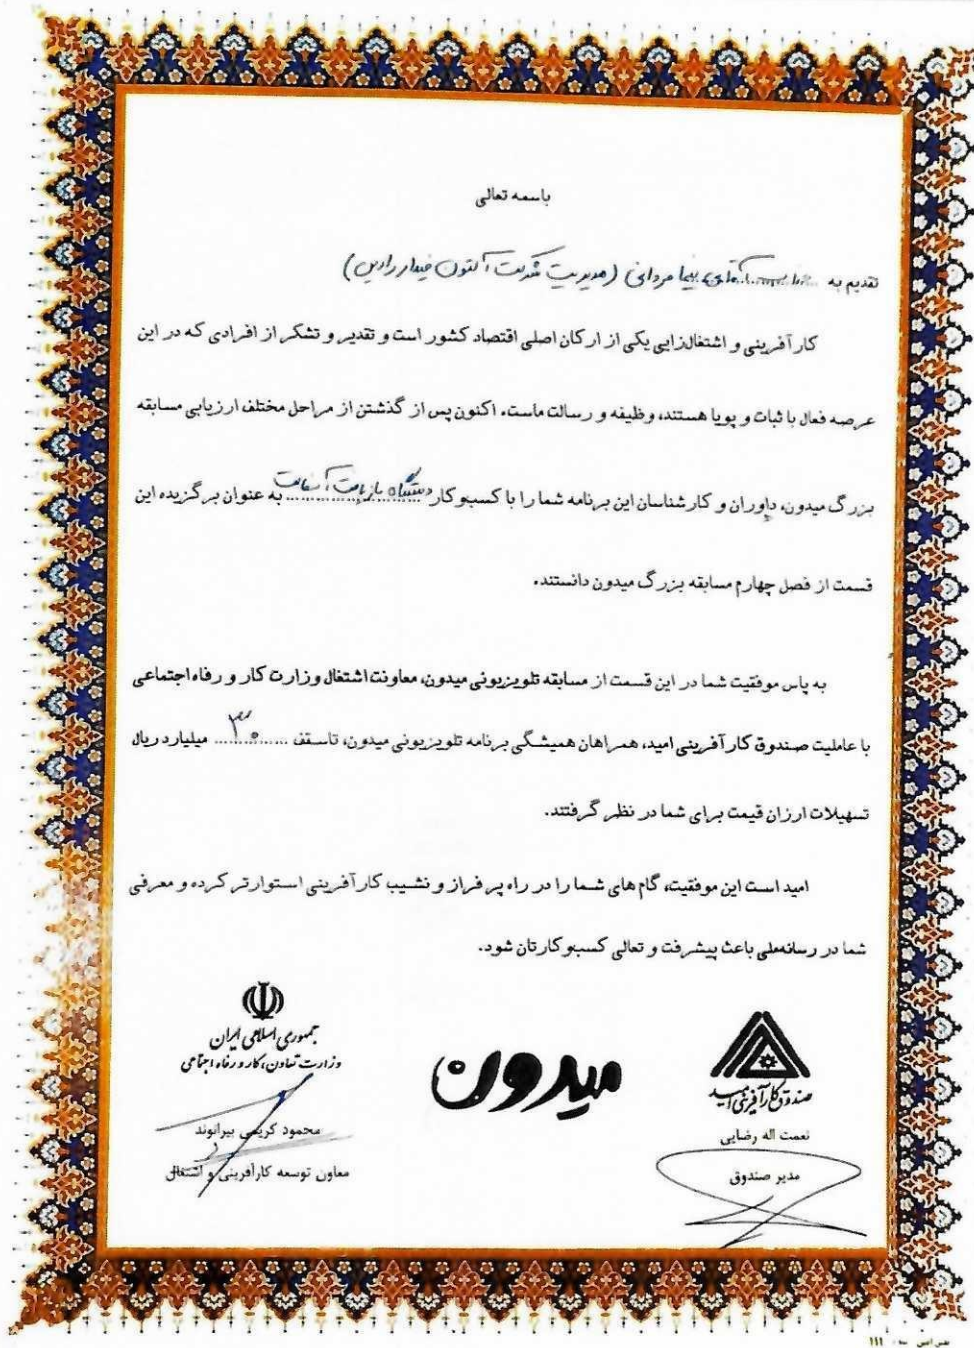 باسمه تعالی
تقدیم به آقای نیما مردانی (مدیریت شرکت آلتون
کارآفرینی و اشتغالزایی یکی از ارکان اصلی اقتصاد کشور است و تقدیر و تشکر از افرادی که در این
عرصه فعال با ثبات و پویا هستند، وظیفه و رسالت ماست. اکنون پس از گذشتن از مراحل مختلف ارزیابی مسابقه
بزرگ میدون، داوران و کارشناسان این برنامه شما را با کسبوکار دستگاه بازیافت آسفالت به عنوان برگزیده این
قسمت از فصل چهارم مسابقه بزرگ میدون دانستند.
به پاس موفقیت شما در این قسمت از مسابقه تلویزیونی میدون، معاونت اشتغال وزارت کار و رفاه اجتماعی
با عاملیت صندوق کارآفرینی امید، همراهان همیشگی برنامه تلویزیونی میدون، تاسقف ۳۰ میلیارد ریال
تسهیلات ارزان قیمت برای شما در نظر گرفتند.
امید است این موفقیت، گام های شما را در راه پر فراز و نشیب کارآفرینی استوارتر کرده و معرفی
شما در رسانه‌ملی باعث پیشرفت و تعالی کسبوکارتان شود.
جمهوری اسلامی ایران
وزارت تعاون، کار و رفاه اجتماعی
محمود کریمی بیرانوند
معاون توسعه کارآفرینی و اشتغال
میدون
صندوق کارآفرینی امید
نعمت اله رضایی
مدیر صندوق